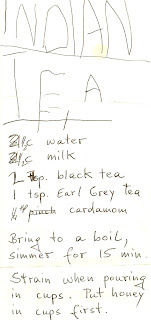 INDIAN
TEA
2½c water
2½c milk
1 tsp. black tea
1 tsp. Earl Grey Tea
¼" cardamom
Bring to a boil,
simmer for 15 min.
Strain when pouring
in cups. Put honey
in cups first.